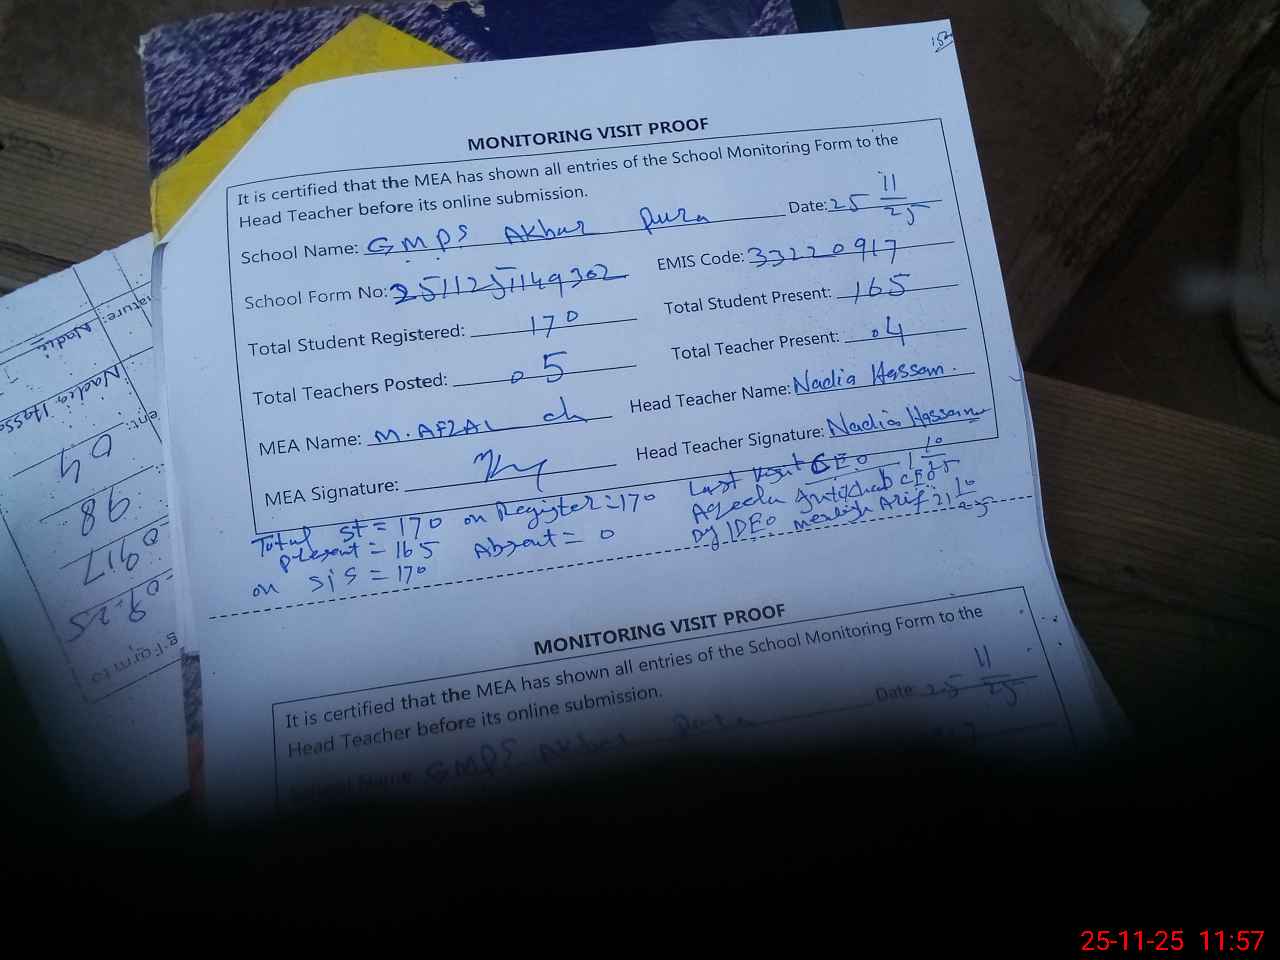 MONITORING VISIT PROOF
It is certified that the MEA has shown all entries of the School Monitoring Form to the
Head Teacher before its online submission.
School Name: GMPS Akbar Pura Date: 25 11/25
School Form No: 2511251149302 EMIS Code: 33220917
Total Student Registered: 170 Total Student Present: 165
Total Teachers Posted: 05 Total Teacher Present: 04
MEA Name: M. AFZAL ch Head Teacher Name: Nadia Hassan.
MEA Signature: Head Teacher Signature: Nadia Hassan
Total st = 170 on Register = 170
Present = 165 Absent = 0
on sis = 170
Last Visit CEO 1 10/25
Aqeela CEO
Dy/DEO Arif 21 10/25
MONITORING VISIT PROOF
It is certified that the MEA has shown all entries of the School Monitoring Form to the
Head Teacher before its online submission.
Date: 25 11/25
GMPS Akbar Pura
Nadia
Nadia Hassa
04
98
0917
09-25
25-11-25 11:57